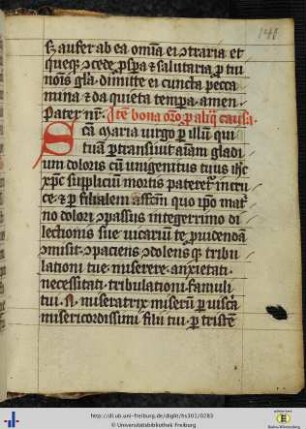 s; aufer ab ea om̄ia ei ↄtraria et
queqꝫ ↄcede ꝓspa & salutaria ꝑ tui
nōis gl̄a dimitte ei cuncta pecca
mina & da quieta tempa amen
Pater nr̄. Itē bona orō ꝑ aliq̄ causa
Scā Maria virgo ꝑ illū qui
tuā ꝑtransiuit aīam gladi
um doloris cū unigenitus tuus ihc
xpc̄ supplicium mortis pateret᷑ in cru
ce & ꝑ filialem affc̄m quo ip̄o mat᷑
no dolori ↄpassus integerrimo di
lectionis sue uicariū te ꝓuidendā
ↄmisit ↄpaciens ↄdolens qꝫ tribu
lationi tue miserere anxietati
necessitati tribulationi famuli
tui .N. miseratrix miserū ꝑ uisc̄a
misericordissimi filii tui ꝑ tristē
http://dl.ub.uni-freiburg.de/diglit/hs301/0283
© Universitätsbibliothek Freiburg